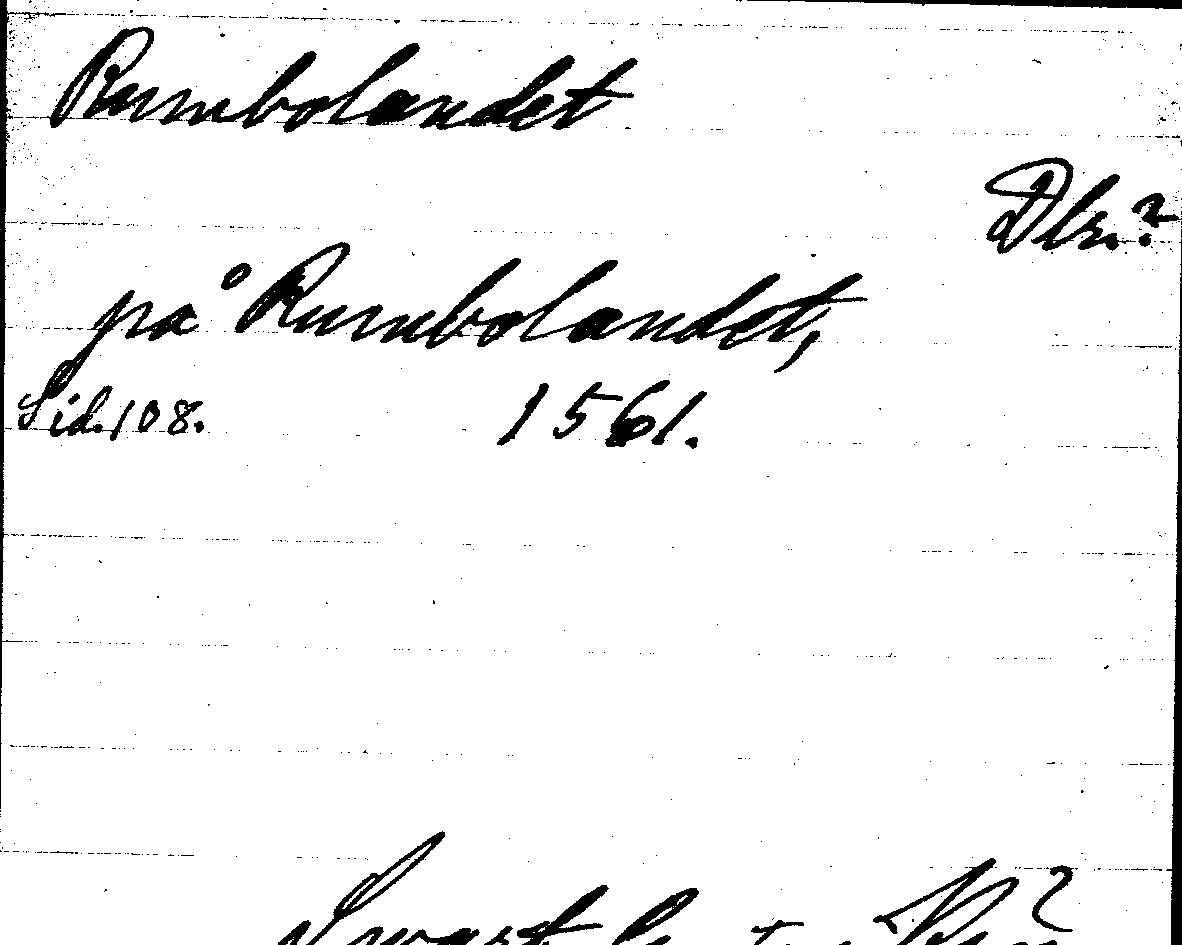 Rumbolandet
Dlr.?
på Rumbolandet,
Sid. 108. 1561.